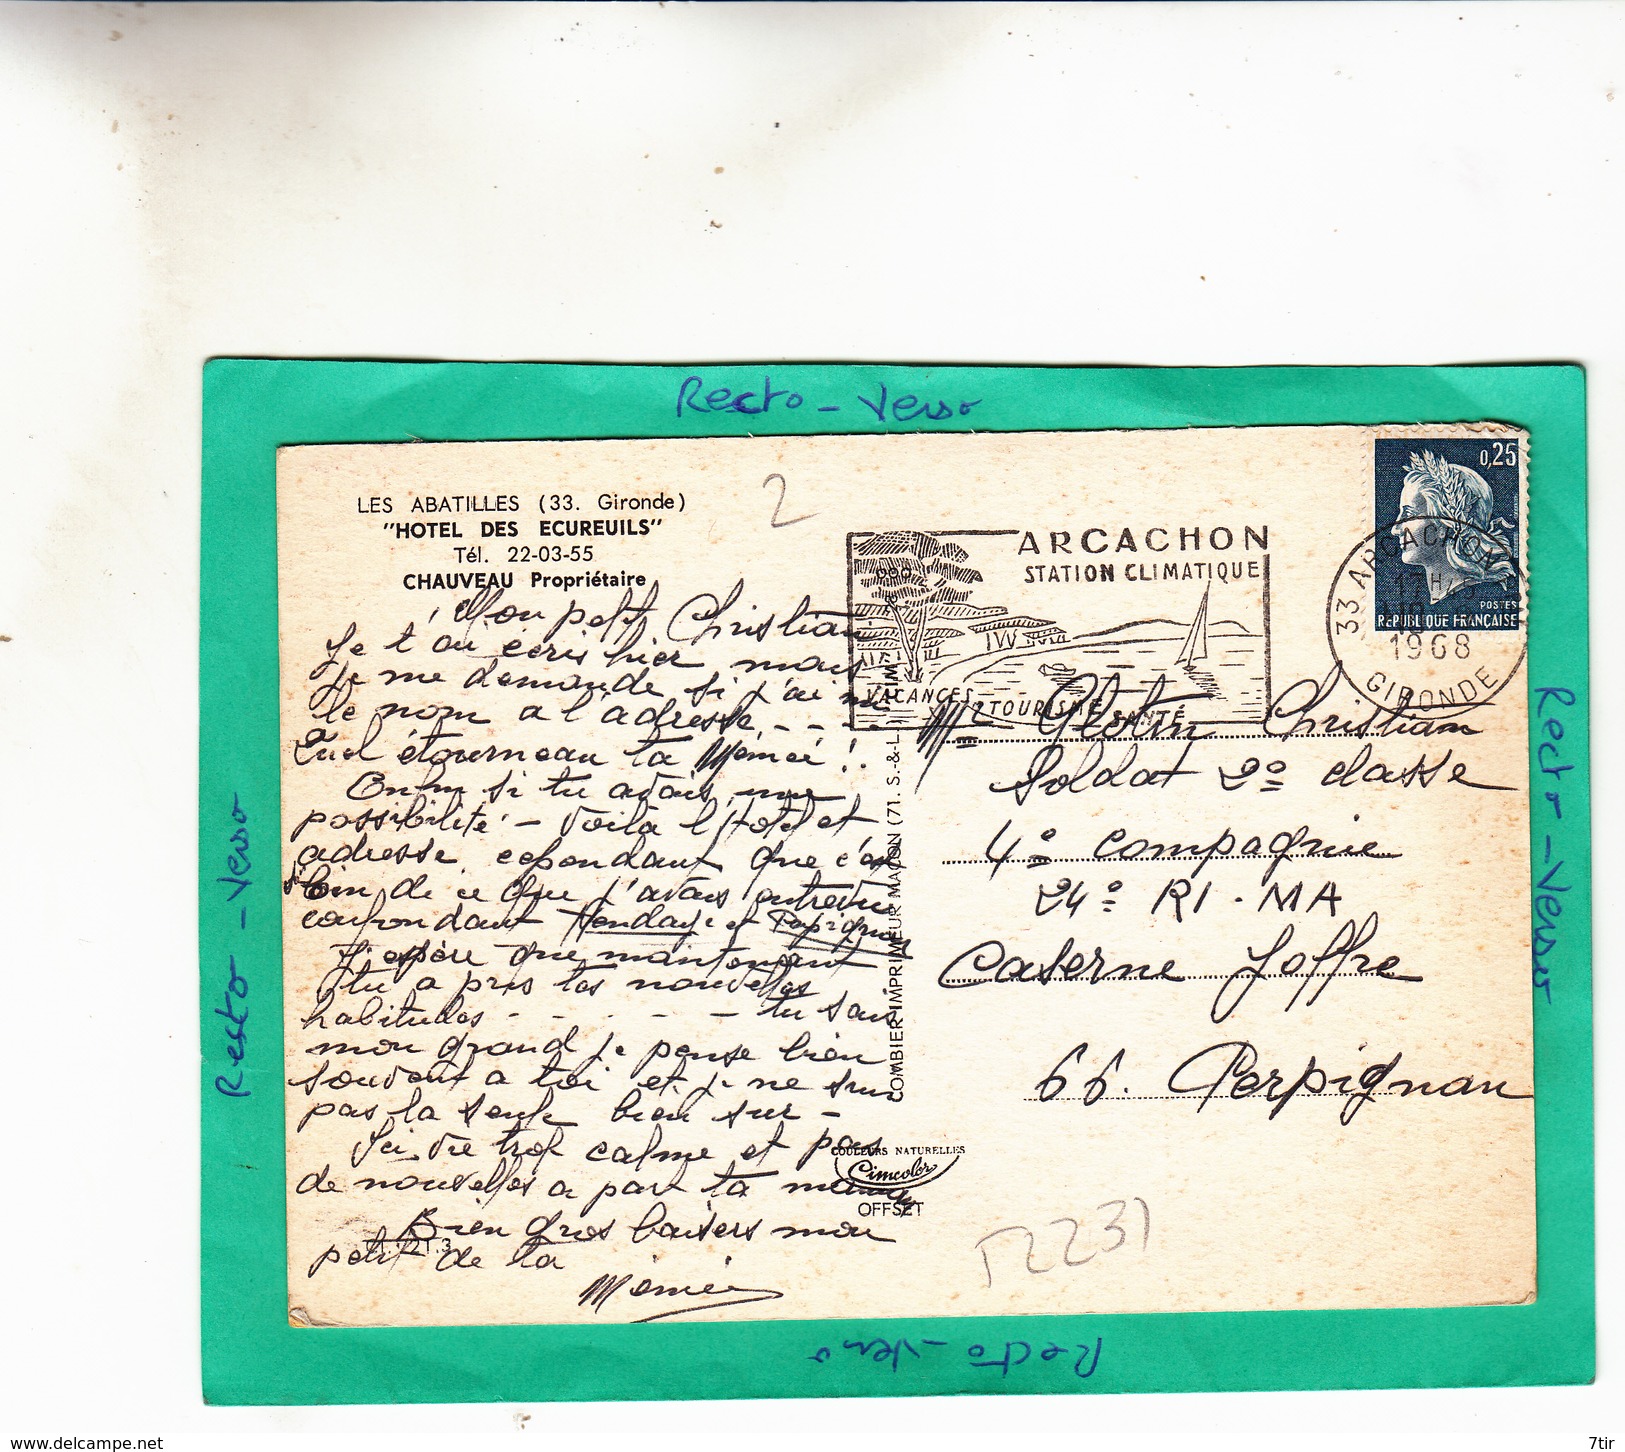 Recto - Verso
LES ABATILLES (33. Gironde)
"HOTEL DES ECUREUILS"
Tél. 22-03-55
CHAUVEAU Propriétaire
2
Mon petit Christian
Je t'ai écris hier mais
je me demande si j'ai mis
le nom a l'adresse - - -
Quel étourneau ta Mémée !
Enfin si tu avais une
possibilité - Voilà l'Hotel et
adresse cependant que c'est
loin de ce que j'avais entrevu
confondant Hendaye et Perpignan
J'espère que maintenant
tu a pris tes nouvelles
habitudes - - - - - tu sais
mon grand je pense bien
souvent a toi et je ne suis
pas la seule bien sur -
Ici vie trop calme et pas
de nouvelles a part ta maman
Bien gros baisers mon
petit de ta
Mémée
21.3
COMBIER IMPRIMEUR MACON (71. S.-&-L.) "CIM"
COULEURS NATURELLES
Cimcolor
OFFSET
ARCACHON
STATION CLIMATIQUE
VACANCES
TOURISME
SANTÉ
0,25
POSTES
REPUBLIQUE FRANÇAISE
33 ARCACHON
17H
1968
GIRONDE
Mr Glotin Christian
Soldat 2e classe
4e compagnie
24e RI. MA
Caserne Joffre
66. Perpignan
52231
Recto - Verso
Recto - Verso
Recto - Verso
www.delcampe.net
7tir